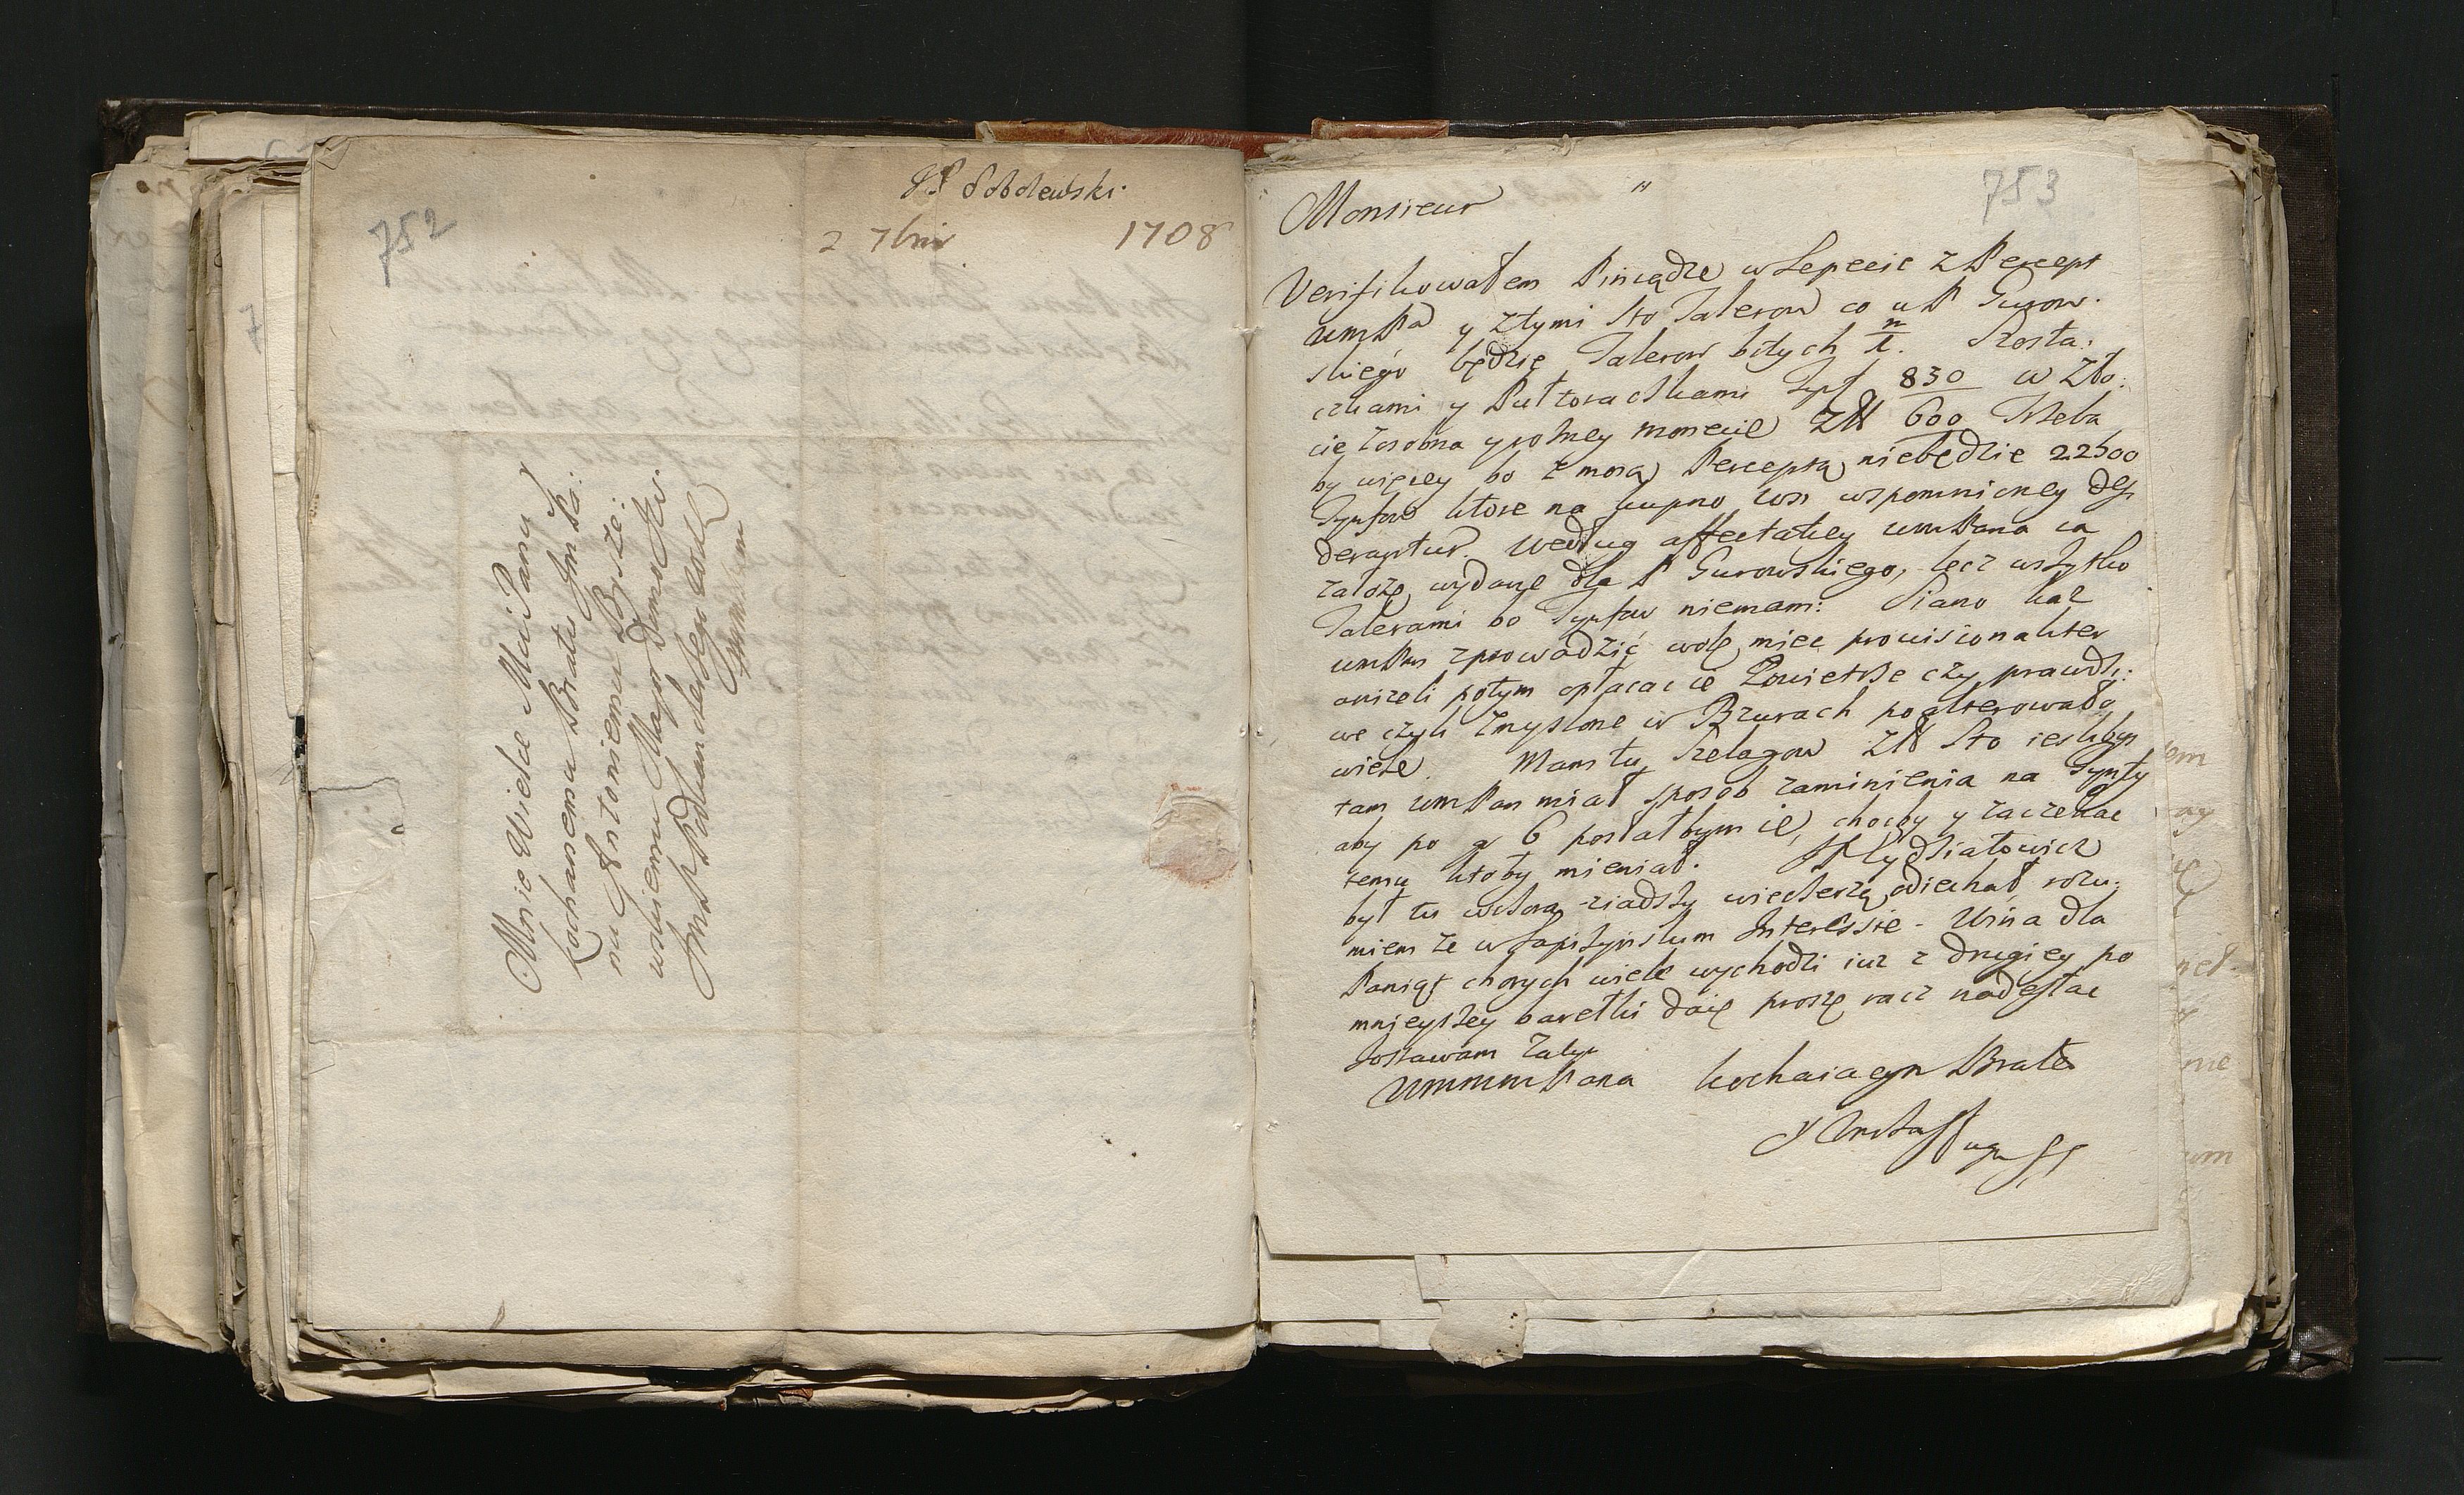 752
JP Sobolewski
2 7bris 1708
Mnie Wielce Msci Panu
Kochanemu Bratu JmPa:
nu Antoniemu Brze:
wskiemu Major Domo
JmP Podkanclerzego Cor
753
Monsieur
Verifikowałem Piniądze w Sepecie z Percept
umPa y z tymi sto Talerow co u P Gurow:
skiego będzie Talerow bitych Szosta:
czkami y Pułtoraczkami Tynf 830 w Zło:
cie zosobna y rożney monecie Zł 600 Trzeba
by więcey bo z moią Perceptą niebędzie 22500
Tynfow ktore na kupno wsi wspomnioney desi
derantur. Według affectatiey umPana ia
założę wydane dla P Gurowskiego, lecz wszytko
Talerami bo Tynfow niemam: Siano kaz
umPan zprowadzić wolę miec prouisionaliter
anizeli potym opłacac ie Powietrze czy prawdzi:
we czyli zmyslone w Bzurach poalterowało
wiele Mam tu Szelagow Zł sto iesliby
tam umPan miał sposob zaminienia na Tynfy
aby po 6 posłałbym ie, chocby y zaczekac
temu ktoby mieniał. JP Lydziatowicz
był tu wczora ziadszy wieczerzą odiechał rozu:
miem ze w Łapszynskim Interessie - Wina dla
Paniąt chorych wiele wychodzi iuz z drugiey po
mnieyszey baretki daię proszę racz nadesłac
Zostawam zatym
UmmmPana kochaiacym Bratem
y sługą